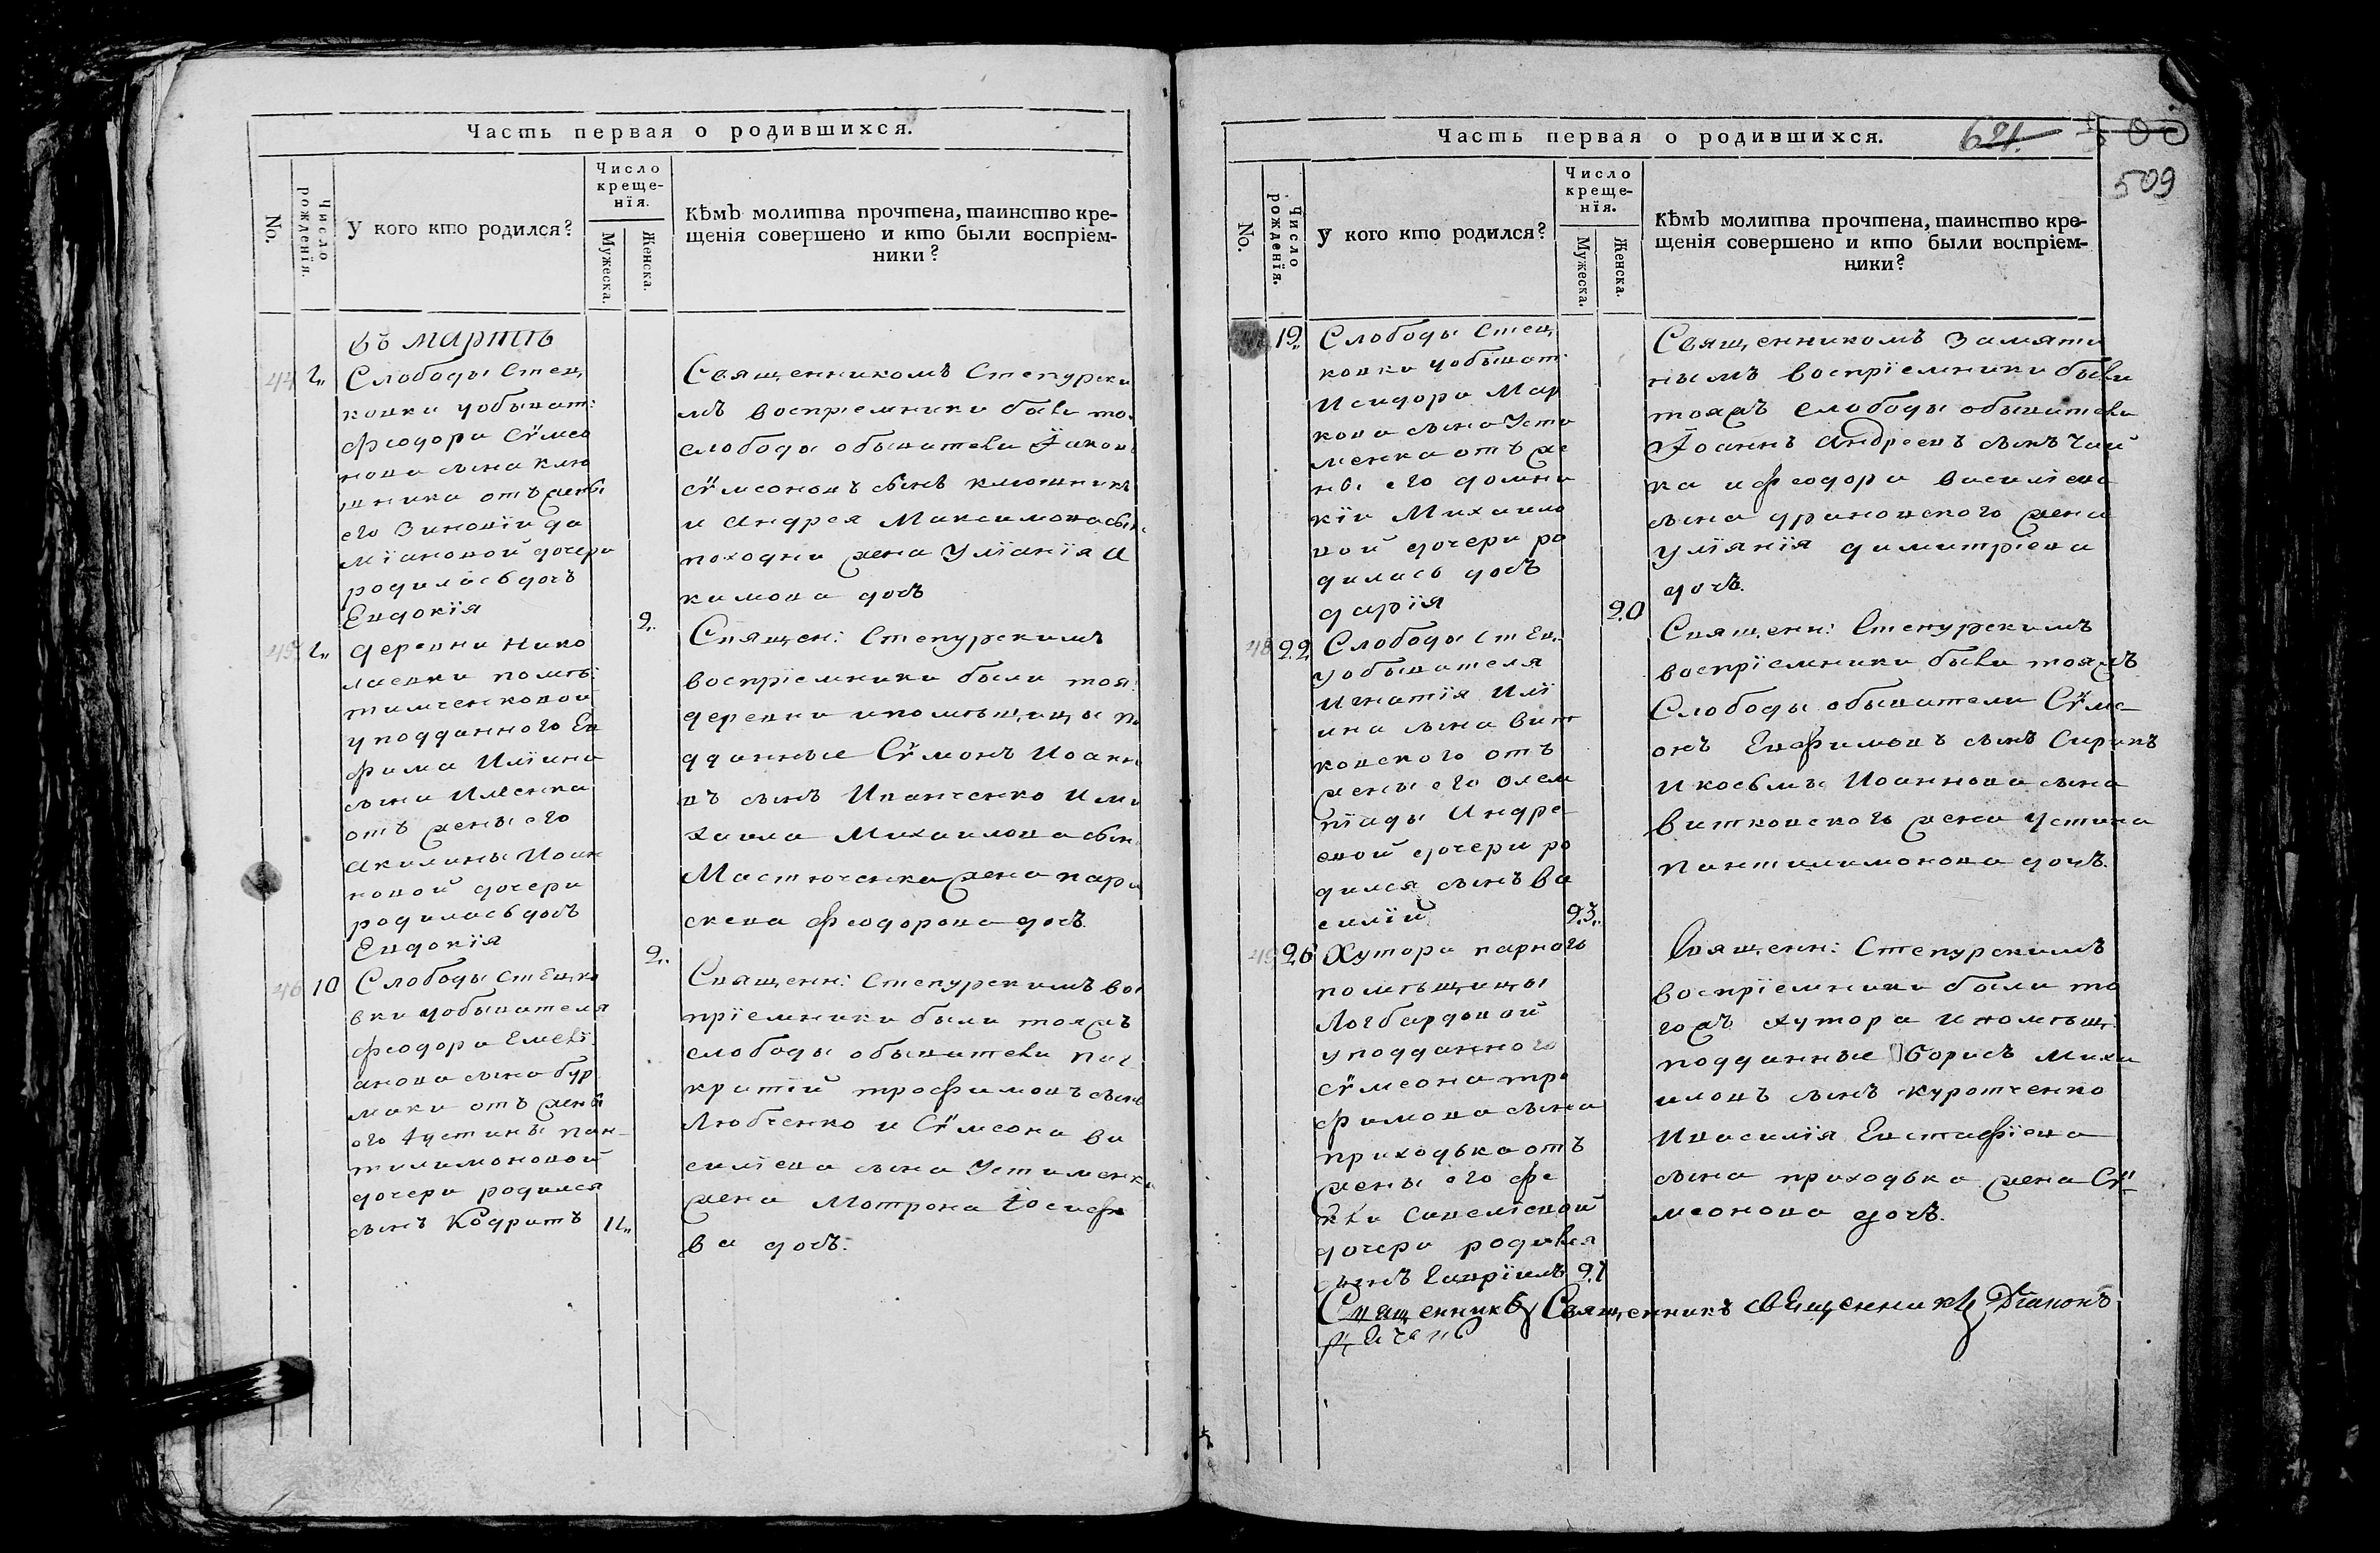 Часть первая о родившихся.
No.
Число рожденїя.
У кого кто родился?
Число креще-нїя.
Мужеска.
Женска.
Кѣмъ молитва прочтена, таинство кре-
щенія совершено и кто были воспріем-
ники?
въ мартѣ
44 2„ Слободы Стец
ковки уобыват:
Феодора Сѵмео
нова сына клю
шника отъ жены
его Зиновїи да
мїановой дочери
родилась дочъ
Евдокїя
2„
Священникомъ Степурски
мъ воспрїемники были то
слободы обыватели Іаков
сѵмеоновъ сынъ клюшникъ
и Андрея Максимова сын
походни жена Улїанїя А
кимова дочъ
45 2„ деревни Нико
лаевки помѣ:
тимченковой
уподданного Ев
фима Илїина
сына
отъ жены его
Акилины Иоан
новой дочери
родилась дочъ
Евдокїя
2„
Священ: Степурскимъ
воспрїемники были тоя
деревни ипомѣщицы по
дданные Сѵмонъ Иоанн
въ сынъ Иванченко и ми
хаила Михаилова сын
жена пара
скева Феодорова дочъ
46 10 Слободы Стецко
вки уобывателя
Феодора Емелї
анова сына бур
маки отъ жены
его Густины пан
тилимоновой
дочери родился
сынъ Кодратъ
11„
Священн: Степурскимъ вос
прїемники были тояжъ
слободы обыватели пан
кратїй трофимовъ сынъ
Любченко и Сѵмеона ва
силїева сына Устименка
жена Мотрона Іосифо
ва дочъ.
Часть первая о родившихся.
621.
509
No.
Число рожденїя.
У кого кто родился?
Число креще-нїя.
Мужеска.
Женска.
Кѣмъ молитва прочтена, таинство кре-
щенія совершено и кто были воспріем-
ники?
19„ Слободы Стец
ковки уобыват:
Исидора Мар
кова сына Усти
менка отъ же
ны его домни
кїи Михаило
вой дочери ро
дилась дочъ
дарїя
20
Священникомъ Замяти
нымъ воспрїемники были
тояжъ слободы обыватели
Іоаннъ Андреевъ сынъ Чай
ка и феодора василїева
сына драновского жена
улїянїя димитрїева
дочъ.
48 22 Слободы Стец
уобывателя
Игнатїя Илї
ина сына вит
ковского отъ
жены его олем
пїады Андре
евой дочери ро
дился сынъ ва
силїй
23„
Священн: Степурскимъ
воспрїемники были тояжъ
Слободы обыватели Сѵме
онъ Евфимовъ сынъ Сирикъ
и косьмы Иоаннова сына
витковского жена устина
пантилимонова дочъ.
49 26 Хутора парного
помѣщицы
уподданного
сѵмеона тро
фимова сына
приходька отъ
жены его фе
клы савелїевой
дочери родился
сынъ Гаврїилъ 27
Священн: Степурскимъ
воспрїемники были то
гожъ хутора ипомѣщ:
подданные борисъ Миха
иловъ сынъ куротченко
ивасилїя Евстафїева
сына приходька жена Сѵ
меонова дочъ.
Священникъ Священникъ священникъ Дїаконъ